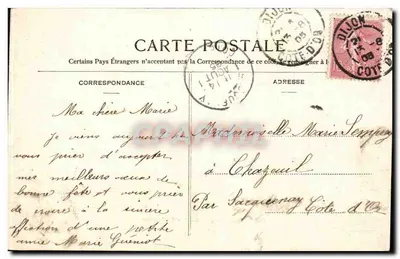 CARTE POSTALE
Certains Pays Étrangers n'acceptent pas la Correspondance de ce côté
CORRESPONDANCE
ADRESSE
DIJON
COTE-D'OR
DIJON
COTE D'OR
14
AOUT
Ma chère Marie
Je viens aujourd'hui
vous prier d'accepter
mes meilleurs vœux de
bonne fête et vous prier
de croire à la sincère
affection d'une petite
amie Marie Guéniot
Mademoiselle Marie
à Chazeuil
Par Sacquenay Côte d'Or